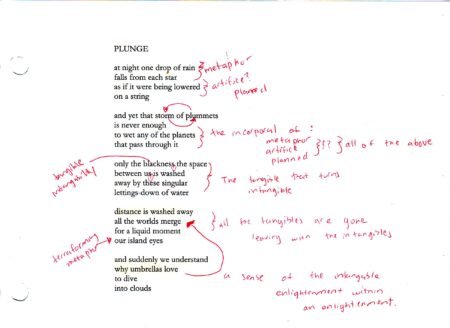 PLUNGE
at night one drop of rain
falls from each star
as if it were being lowered
on a string
metaphor
artifice?
planned
and yet that storm of plummets
is never enough
to wet any of the planets
that pass through it
the incorporal of :
metaphor
artifice
planned
!? all of the above
only the blackness the space
between us is washed
away by these singular
lettings-down of water
tangible
intangibility
The tangible that turns
intangible
distance is washed away
all the worlds merge
for a liquid moment
our island eyes
all the tangibles are gone
leaving with the intangibles
terraforming
metaphor
and suddenly we understand
why umbrellas love
to dive
into clouds
a sense of the intangible
enlightenment within
an enlightenment.